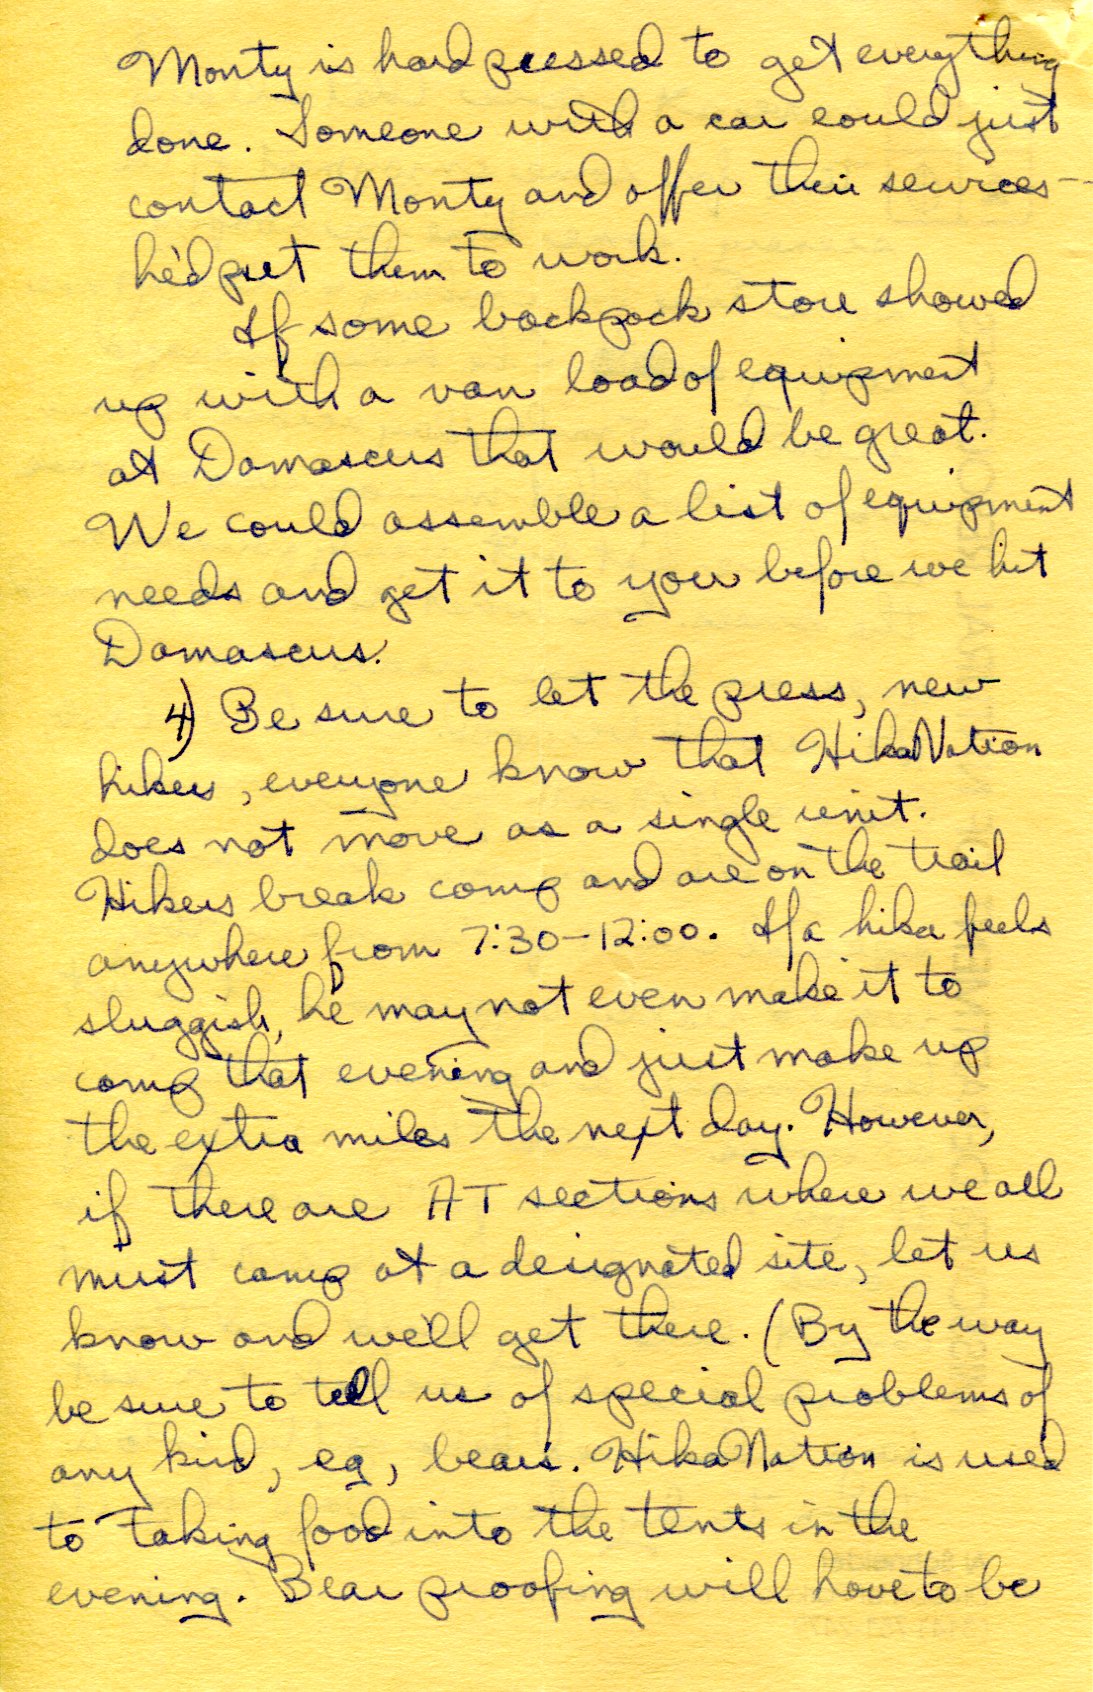 Monty is hard pressed to get everything
done. Someone with a car could just
contact Monty and offer their services--
he'd put them to work.
If some backpack store showed
up with a van load of equipment
at Damascus that would be great.
We could assemble a list of equipment
needs and get it to you before we hit
Damascus.
4) Be sure to let the press, new
hikers, everyone know that HikaNation
does not move as a single unit.
Hikers break camp and are on the trail
anywhere from 7:30-12:00. If a hika feels
sluggish, he may not even make it to
camp that evening and just make up
the extra miles the next day. However,
if there are AT sections where we all
must camp at a designated site, let us
know and we'll get there. (By the way
be sure to tell us of special problems of
any kind, eg, bears. HikaNation is used
to taking food into the tents in the
evening. Bear proofing will have to be